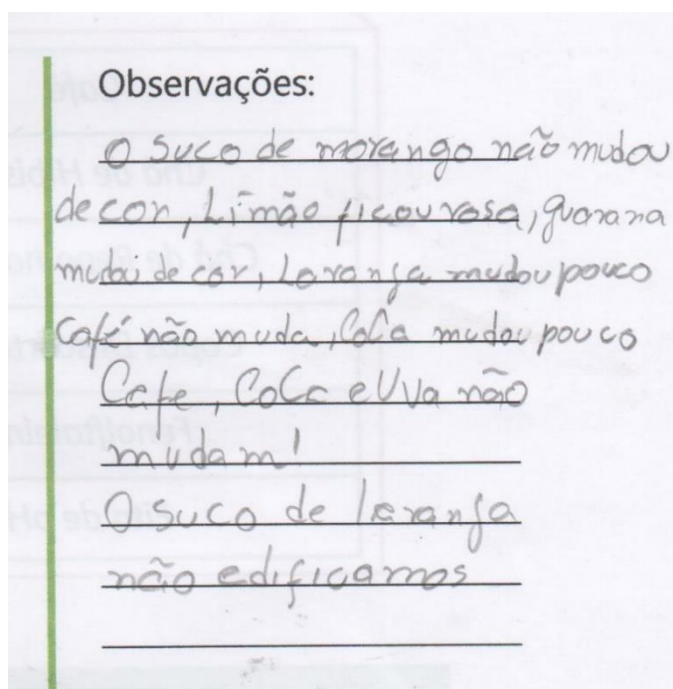 Observações:
O suco de morango não mudou
de cor, Limão ficou rosa, guarana
mudou de cor, Laranja mudou pouco
café não muda, Coca mudou pouco
Cafe, CoCa e Uva não
mudam!
O suco de laranja
não edificamos